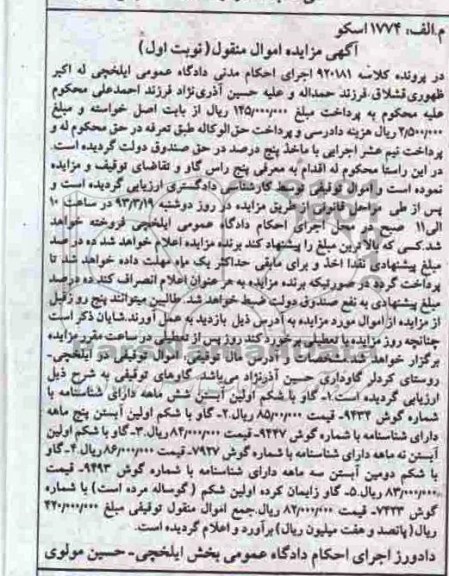 م.الف، ۱۷۷۴ اسکو
آگهی مزایده اموال منقول (نوبت اول)
در پرونده کلاسه ۹۲۰۱۸۱ اجرای احکام مدنی دادگاه عمومی ایلخچی له اکبر
ظهوری قشلاق، فرزند حمداله و علیه حسین آذری‌نژاد فرزند احمدعلی محکوم
علیه محکوم به پرداخت مبلغ ۱۴۵/۰۰۰/۰۰۰ ریال از بابت اصل خواسته و مبلغ
۲/۵۰۰/۰۰۰ ریال هزینه دادرسی و پرداخت حق‌الوکاله طبق تعرفه در حق محکوم له و
پرداخت نیم عشر اجرایی با ماخذ پنج درصد در حق صندوق دولت گردیده است.
در این راستا محکوم له اقدام به معرفی پنج راس گاو و تقاضای توقیف و مزایده
نموده است و اموال توقیفی توسط کارشناس دادگستری ارزیابی گردیده است و
پس از طی مراحل قانونی از طریق مزایده در روز دوشنبه ۹۳/۳/۱۹ در ساعت ۱۰
الی۱۱ صبح در محل اجرای احکام دادگاه عمومی ایلخچی فروخته خواهد
شد.کسی که بالاترین مبلغ را پیشنهاد کند برنده مزایده اعلام خواهد شد ده در صد
مبلغ پیشنهادی نقدا اخذ و برای مابقی حداکثر یک ماه مهلت داده خواهد شد تا
پرداخت گردد در صورتیکه برنده مزایده به هر عنوان اعلام انصراف کند ده درصد
مبلغ پیشنهادی به نفع صندوق دولت ضبط خواهد شد. طالبین میتوانند پنج روز قبل
از مزایده از اموال مورد مزایده به آدرس ذیل بازدید به عمل آورند.شایان ذکر است
چنانچه روز مزایده با تعطیلی برخورد کند روز پس از تعطیلی در ساعت مقرر مزایده
برگزار خواهد شد. مشخصات و آدرس مال توقیفی، اموال توقیفی در ایلخچی-
روستای کردلر گاوداری حسین آذرنژاد می‌باشد. گاوهای توقیفی به شرح ذیل
ارزیابی گردیده است.۱- گاو با شکم اولین آبستن شش ماهه دارای شناسنامه با
شماره گوش ۹۴۳۴- قیمت ۸۵/۰۰۰/۰۰۰ ریال.۲- گاو با شکم اولین آبستن پنج ماهه
دارای شناسنامه با شماره گوش ۹۴۴۷-قیمت ۸۴/۰۰۰/۰۰۰ ریال.۳- گاو با شکم اولین
آبستن نه ماهه دارای شناسنامه با شماره گوش ۷۹۲۷- قیمت ۸۶/۰۰۰/۰۰۰ ریال.۴-گاو
با شکم دومین آبستن سه ماهه دارای شناسنامه با شماره گوش ۹۴۹۳- قیمت
۸۳/۰۰۰/۰۰۰ ریال.۵- گاو زایمان کرده اولین شکم (گوساله مرده است) با شماره
گوش ۷۴۳۳- قیمت ۸۲/۰۰۰/۰۰۰ ریال.جمع اموال منقول توقیفی مبلغ ۴۲۰/۰۰۰/۰۰۰
ریال( پانصد و هفت میلیون ریال) برآورد و اعلام گردیده است.
دادورز اجرای احکام دادگاه عمومی بخش ایلخچی- حسین مولوی